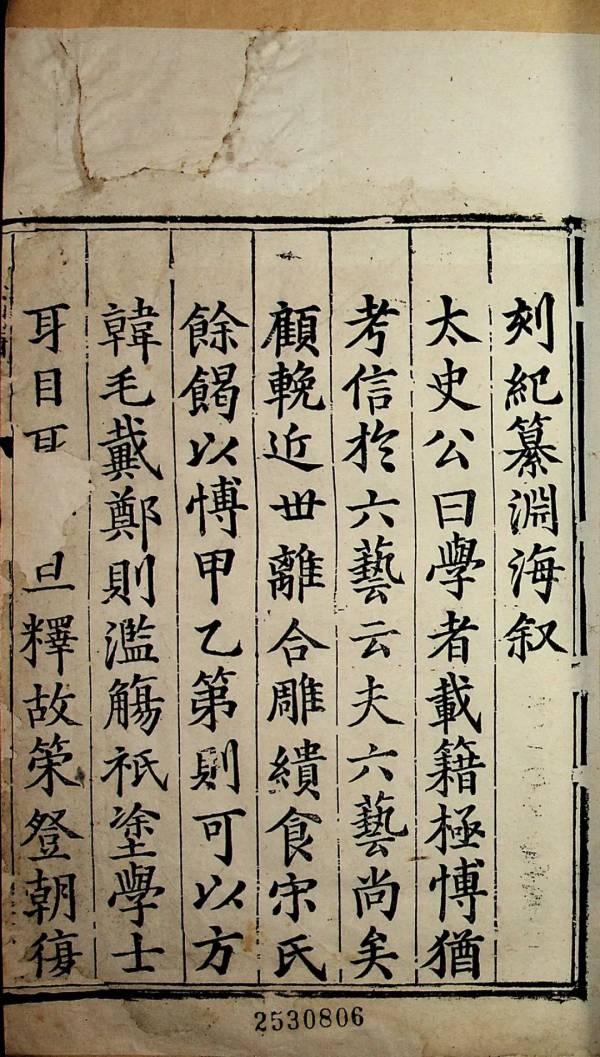 刻紀纂淵海叙
太史公曰學者載籍極愽猶
考信於六藝云夫六藝尚矣
顧輓近丗離合雕繢食宋氏
餘餲以愽甲乙第則可以方
韓毛戴鄭則濫觴祇塗學士
耳目旦釋故策登朝復
2530806